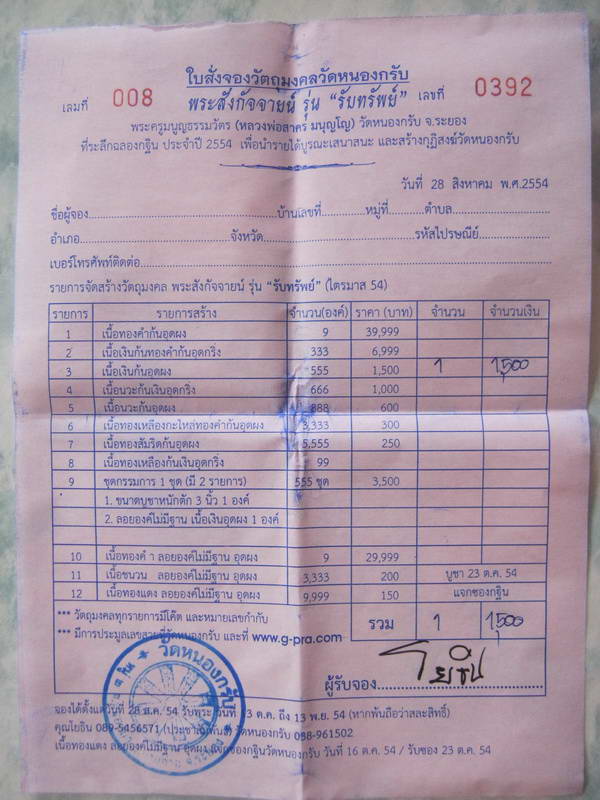 ใบสั่งจองวัตถุมงคลวัดหนองกรับ
เล่มที่ 008 พระสังกัจจายน์ รุ่น "รับทรัพย์" เลขที่ 0392
พระครูมนูญธรรมวัตร (หลวงพ่อสาคร มนุญโญ) วัดหนองกรับ จ.ระยอง
ที่ระลึกฉลองกฐิน ประจำปี 2554 เพื่อนำรายได้บูรณะเสนาสนะ และสร้างกุฏิสงฆ์วัดหนองกรับ
วันที่ 28 สิงหาคม พ.ศ.2554
ชื่อผู้จอง บ้านเลขที่ หมู่ที่ ตำบล
อำเภอ จังหวัด รหัสไปรษณีย์
เบอร์โทรศัพท์ติดต่อ
รายการจัดสร้างวัตถุมงคล พระสังกัจจายน์ รุ่น "รับทรัพย์" (ไตรมาส 54)
รายการ รายการสร้าง จำนวน(องค์) ราคา (บาท) จำนวน จำนวนเงิน
1 เนื้อทองคำก้นอุดผง 9 39,999
2 เนื้อเงินก้นทองคำก้นอุดกริ่ง 333 6,999
3 เนื้อเงินก้นอุดผง 555 1,500 1 1,500
4 เนื้อนวะก้นเงินอุดกริ่ง 666 1,000
5 เนื้อนวะก้นอุดผง 888 600
6 เนื้อทองเหลืองกะไหล่ทองคำก้นอุดผง 3,333 300
7 เนื้อทองสัมริดก้นอุดผง 5,555 250
8 เนื้อทองเหลืองก้นเงินอุดกริ่ง 99
9 ชุดกรรมการ 1 ชุด (มี 2 รายการ) 555 ชุด 3,500
1. ขนาดบูชาหน้กตัก 3 นิ้ว 1 องค์
2. ลอยองค์ไม่มีฐาน เนื้อเงินอุดผง 1 องค์
10 เนื้อทองคำ ลอยองค์ไม่มีฐาน อุดผง 9 29,999
11 เนื้อชนวน ลอยองค์ไม่มีฐาน อุดผง 3,333 200 บูชา 23 ต.ค. 54
12 เนื้อทองแดง ลอยองค์ไม่มีฐาน อุดผง 9,999 150 แจกซองกฐิน
*** วัตถุมงคลทุกรายการมีโค๊ด และหมายเลขกำกับ รวม 1 1,500
*** มีการประมูลเลขสวยที่วัดหนองกรับ และที่ www.g-pra.com
ผู้รับจอง โยธิน
วัดหนองกรับ
จองได้ตั้งแต่วันที่ 28 ส.ค. 54 รับพระ วันที่ ต.ค. ถึง 13 พ.ย. 54 (หากพ้นถือว่าสละสิทธิ์)
คุณโยธิน 089-5456571 (ประชาสัมพันธ์) วัดหนองกรับ 038-961502
เนื้อทองแดง ลอยองค์ไม่มีฐาน อุดผง แจกซองกฐินวัดหนองกรับ วันที่ 16 ต.ค. 54 / รับซอง 23 ต.ค. 54